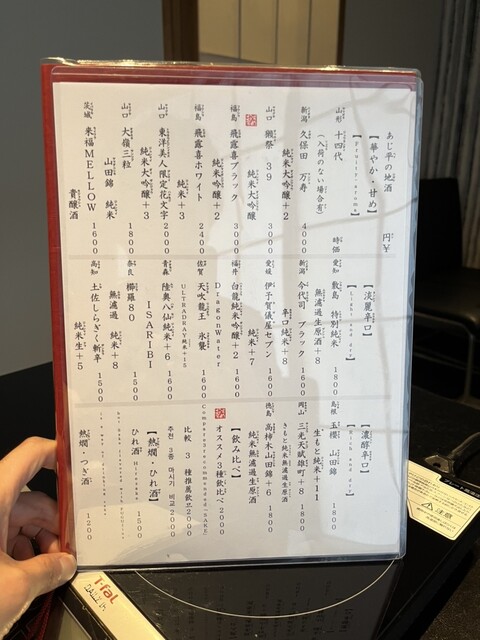 あじ平の地酒
円¥
【華やか・甘め】
【Fruity aroma】
山形 十四代 時価
(入荷のない場合有)
新潟 久保田 万寿 4000
純米大吟醸+2
山口 獺祭 39 3000
純米大吟醸
福島 飛露喜ブラック 3000
純米大吟醸+2
福島 飛露喜ホワイト 2400
純米+3
山口 東洋美人 限定花文字 2000
純米大吟醸+3
山口 大嶺三粒 1800
山田錦 純米
茨城 来福MELLOW 1600
貴醸酒
【淡麗辛口】
【Light and dry】
愛知 敷島 特別純米 1800
無濾過生原酒+8
新潟 今代司 ブラック 1600
辛口純米+8
愛媛 伊予賀儀屋セブン 1600
純米+7
福井 白龍純米吟醸+2 1600
DragonWater
佐賀 天吹龍王 氷襲 1600
ULTRADRAY純米+15
青森 陸奥八仙純米+6 1600
ISARIBI
奈良 櫛羅80 1500
無濾過 純米+8
高知 土佐しらぎく斬辛 1500
純米生+5
【濃醇辛口】
【Rich and dry】
島根 玉櫻 山田錦 1800
生もと純米+11
岡山 三光天賦雄町+8 1800
きもと純米無濾過生原酒
徳島 高柿木山田錦+6 1800
純米無濾過生原酒
【飲み比べ】
オススメ3種飲比べ 2000
Compare3recommended"SAKE"
比較 3 種推薦飲品 2000
추천 3종 마시기 비교 2000
【熱燗・ひれ酒】
ひれ酒 1500
熱燗・つぎ酒 1200
注意
T-fal